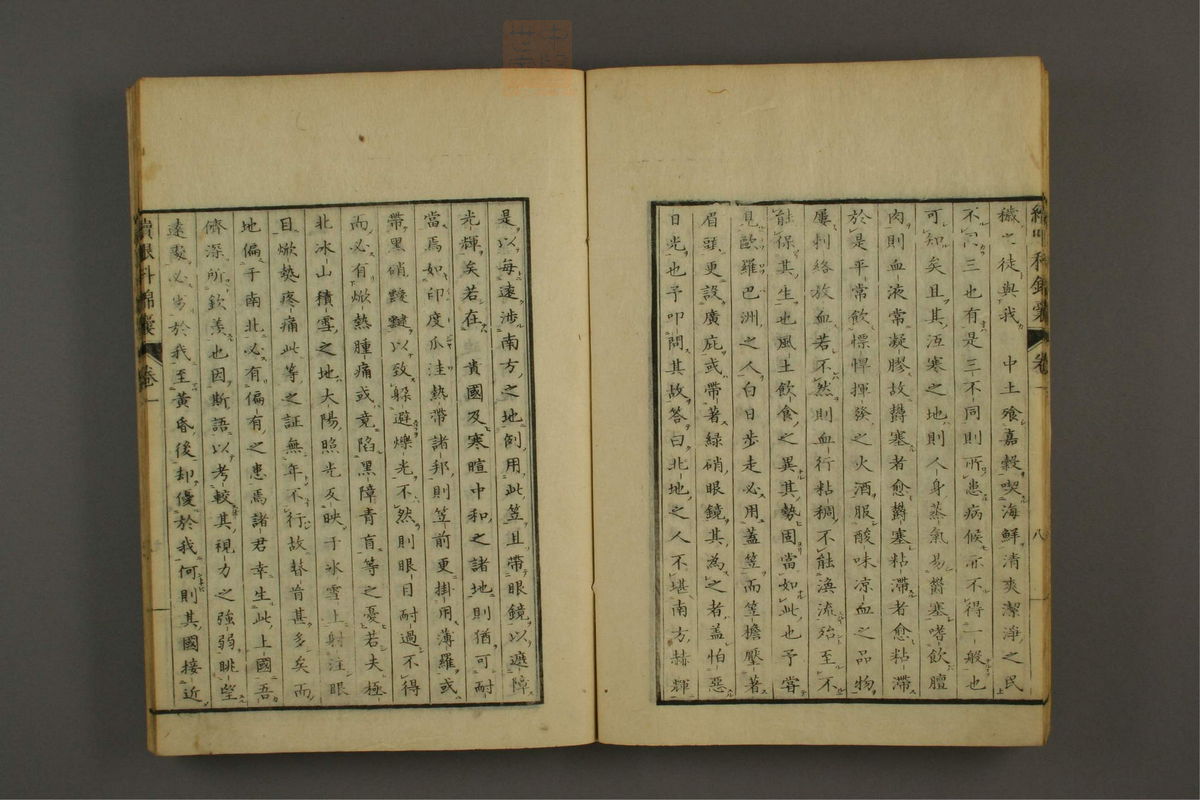 穢之徒與我 中土飧嘉穀喫海鮮清爽潔淨之民
不同三也有是三不同則所患病候亦不得一般也
可知矣且其沍寒之地則人身蒸氣易欝塞嗜飲膻
肉則血液常凝膠故欝塞者愈欝塞粘滯者愈粘滯
於是平常飲慓悍揮發之火酒服酸味凉血之品物
屢刺絡放血若不然則血行粘稠不能渙流殆至不
能保其生也風土飲食之異其勢固當如此也予甞
見歐羅巴洲之人白日步走必用蓋笠而笠擔壓著
眉頭更設廣庇或帶著緑硝眼鏡其為之者蓋怕惡
日光也予叩問其故答曰北地之人不堪南方赫輝
是以每遠涉南方之地例用此笠且帶眼鏡以遮障
光輝矣若在 貴國及寒暄中和之諸地則猶可耐
當焉如印度瓜洼熱帶諸邦則笠前更掛用薄羅或
帶黑硝靉靆以致躲避爍光不然則眼目耐過不得
而必有焮熱腫痛或竟陷黑障青盲等之憂若夫極
北冰山積雪之地大陽照光反映于冰雪上射注眼
目焮㷟疼痛此等之証無年不行故瞽盲甚多矣而
地偏于南北必有偏有之患焉諸君幸生此上國吾
儕深所欽羨也因斯語以考較其視力之強弱眺望
遠夐必劣於我至黃昏後却優於我何則其國接近
續眼科錦囊 卷一 八
續眼科錦囊 卷一